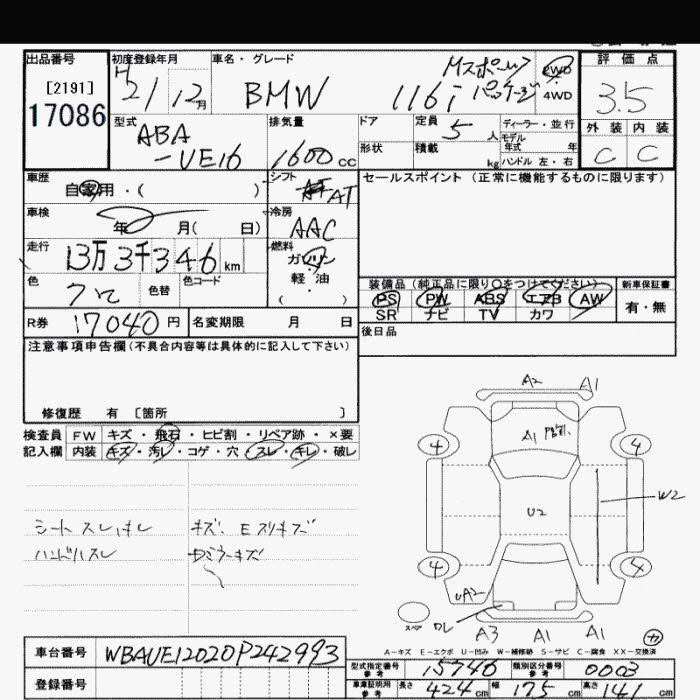 出品番号
[2191]
17086
初度登録年月
H 21 12月
車名・グレード
BMW 116i Mスポーツ パッケージ
2WD
4WD
評価点
3.5
外装 内装
C C
型式
ABA
-UE16
排気量
1600 cc
ドア
形状
定員
5人
積載
kg
ディーラー・並行
モデル
年式 年
ハンドル 左・右
車歴
自家用・( )
シフト
AT
セールスポイント (正常に機能するものに限ります)
車検
年 月( 日)
冷房
AAC
走行
13万3千346 km
燃料
ガソリン
軽・油
( )
色
色替
色コード
装備品 (純正品に限り○をつけてください)
PS PW ABS エアB AW
SR ナビ TV カワ
新車保証書
有・無
R券 17040円
名変期限 月 日
後日品
注意事項申告欄(不具合内容等は具体的に記入して下さい)
修復歴 有 〔箇所 〕
検査員 FW キズ・飛石・ヒビ割・リペア跡・×要
記入欄 内装 キズ・汚レ・コゲ・穴・スレ・キレ・破レ
シートスレ、キレ
ハンドルスレ
A2 A1
A1
4 4
U2
W2
4 4
UA2
スペア
A3 A1 A1
A-キズ E-エクボ U-凹み W-補修跡 S-サビ C-腐食 XX-交換済
車台番号 WBAUE12020P242993
登録番号
型式指定番号 参考 15746
類別区分番号 参考 0003
車庫証明用 参考 長さ 424cm 幅 175cm 高さ 141cm